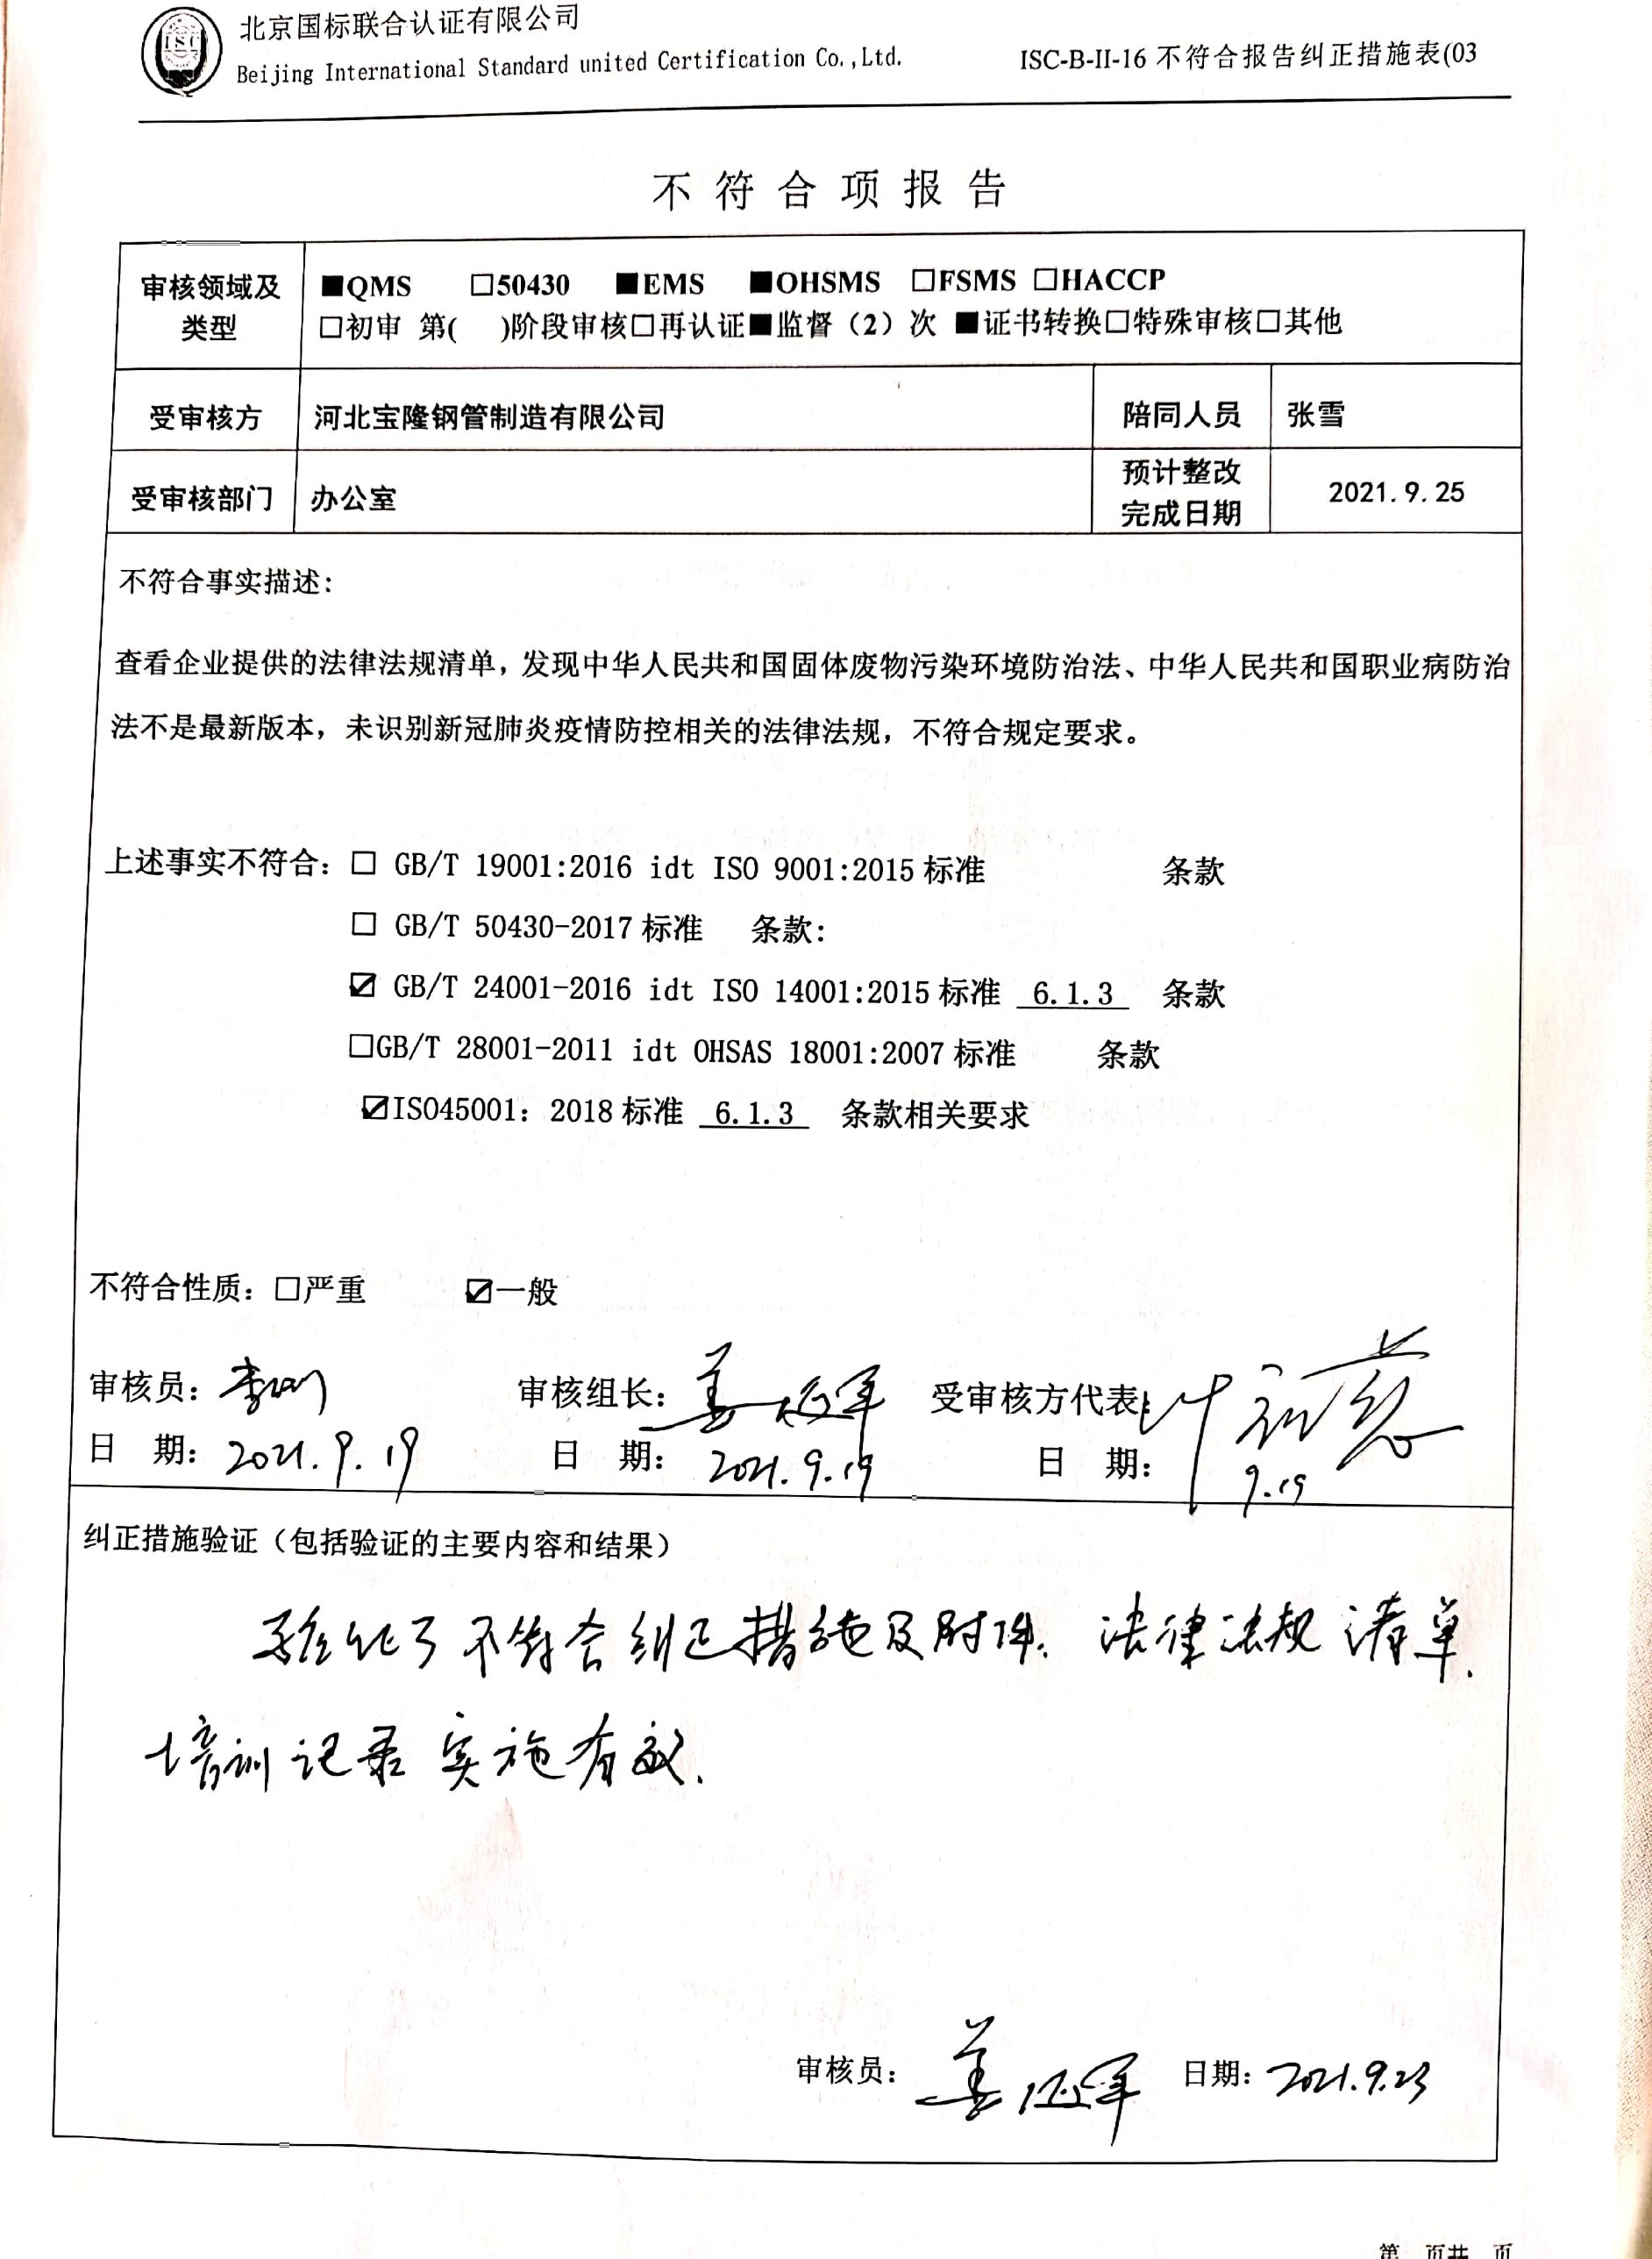 北京国标联合认证有限公司
Beijing International Standard united Certification Co.,Ltd.
ISC-B-II-16 不符合报告纠正措施表(03
ISC
不符合项报告
审核领域及
类型
■QMS □50430 ■EMS ■OHSMS □FSMS □HACCP
□初审 第( )阶段审核□再认证■监督（2）次 ■证书转换□特殊审核□其他
受审核方 河北宝隆钢管制造有限公司 陪同人员 张雪
受审核部门 办公室
预计整改
完成日期
2021.9.25
不符合事实描述：
查看企业提供的法律法规清单，发现中华人民共和国固体废物污染环境防治法、中华人民共和国职业病防治
法不是最新版本，未识别新冠肺炎疫情防控相关的法律法规，不符合规定要求。
上述事实不符合：□ GB/T 19001:2016 idt ISO 9001:2015 标准 条款
□ GB/T 50430-2017 标准 条款：
☑ GB/T 24001-2016 idt ISO 14001:2015 标准 6.1.3 条款
□GB/T 28001-2011 idt OHSAS 18001:2007 标准 条款
☑ISO45001：2018 标准 6.1.3 条款相关要求
不符合性质：□严重 ☑一般
审核员： 审核组长： 受审核方代表：
日 期：2021.9.19 日 期：2021.9.19 日 期：9.19
纠正措施验证（包括验证的主要内容和结果）
验证了不符合纠正措施及附件、法律法规清单、
培训记录实施有效.
审核员： 日期：2021.9.23
第 页共 页